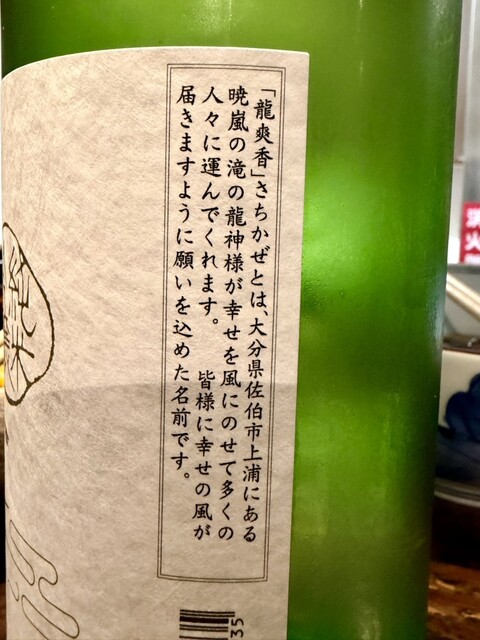 「龍爽香」さちかぜとは、大分県佐伯市上浦にある
暁嵐の滝の龍神様が幸せを風にのせて多くの
人々に運んでくれます。　皆様に幸せの風が
届きますように願いを込めた名前です。
純米
35